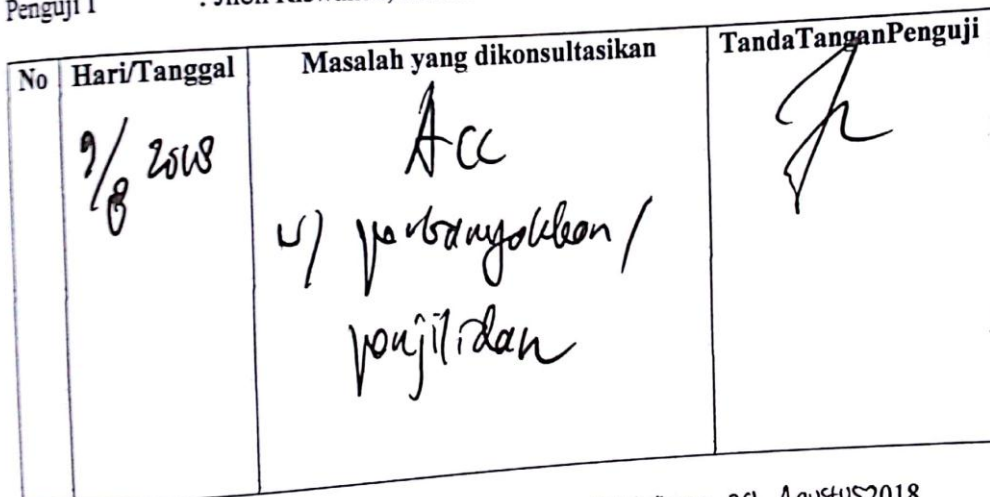 Penguji 1
No Hari/Tanggal Masalah yang dikonsultasikan TandaTanganPenguji
9/8 2018 Acc
u/ perbanyakkan /
penjilidan
Agustus 2018